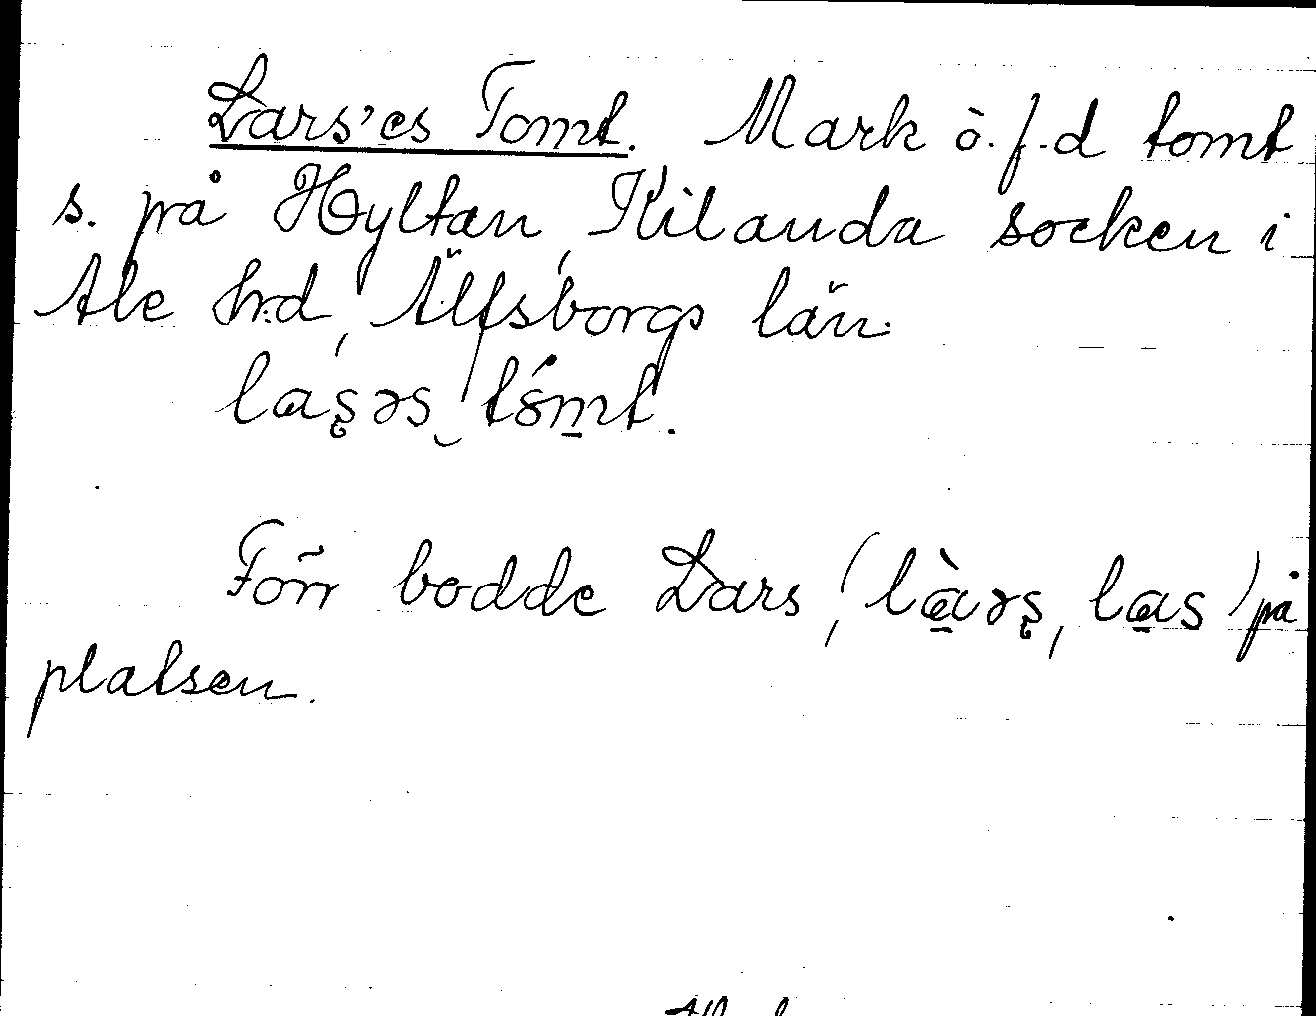 Lars'es Tomt. Mark o. f.d tomt
s. på Hyltan, Kilanda socken i
Ale hrd, Älfsborgs län.
las̨əs‿tómt.
Förr bodde Lars, (là̱əs̨, la̱s) på
platsen.